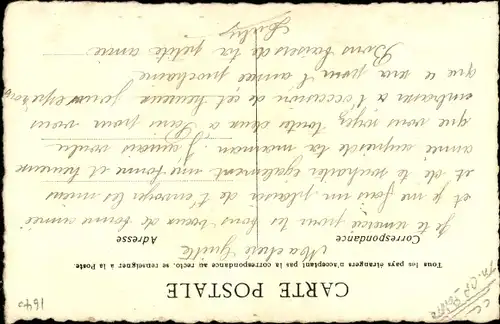 CARTE POSTALE
Tous les pays étrangers n'acceptant pas la correspondance au recto, se renseigner à la Poste.
Correspondance
Adresse
Ma chère
Je te remercie pour les bons vœux de bonne année
et je me fais un plaisir de t'envoyer les miens
et de te souhaiter également une bonne et heureuse
année auprès de ta maman. J'aurais voulu
que vous soyez toutes deux à Paris pour vous
embrasser à l'occasion de cet heureux jour
que ce sera pour l'année prochaine
Bons baisers de ta petite amie